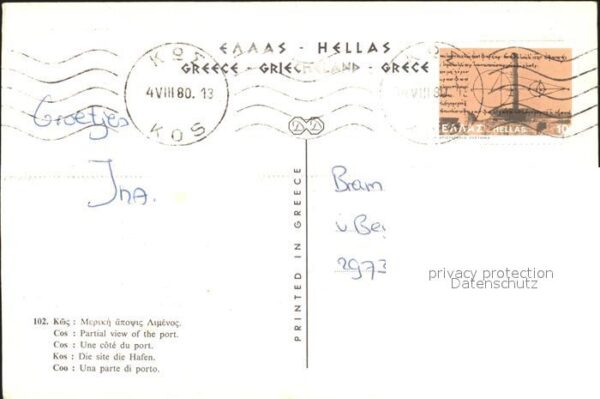 ΕΛΛΑΣ - HELLAS
GREECE - GRIECHENLAND - GRECE
ΚΩΣ
4 VIII 80. 13
KOS
4 VIII 80. 13
ΕΛΛΑΣ HELLAS 10
Groetjes
Ina.
PRINTED IN GREECE
Bram
v Be
2973
privacy protection
Datenschutz
102. Κῶς : Μερικὴ ἄποψις Λιμένος.
Cos : Partial view of the port.
Cos : Une côté du port.
Kos : Die site die Hafen.
Coo : Una parte di porto.